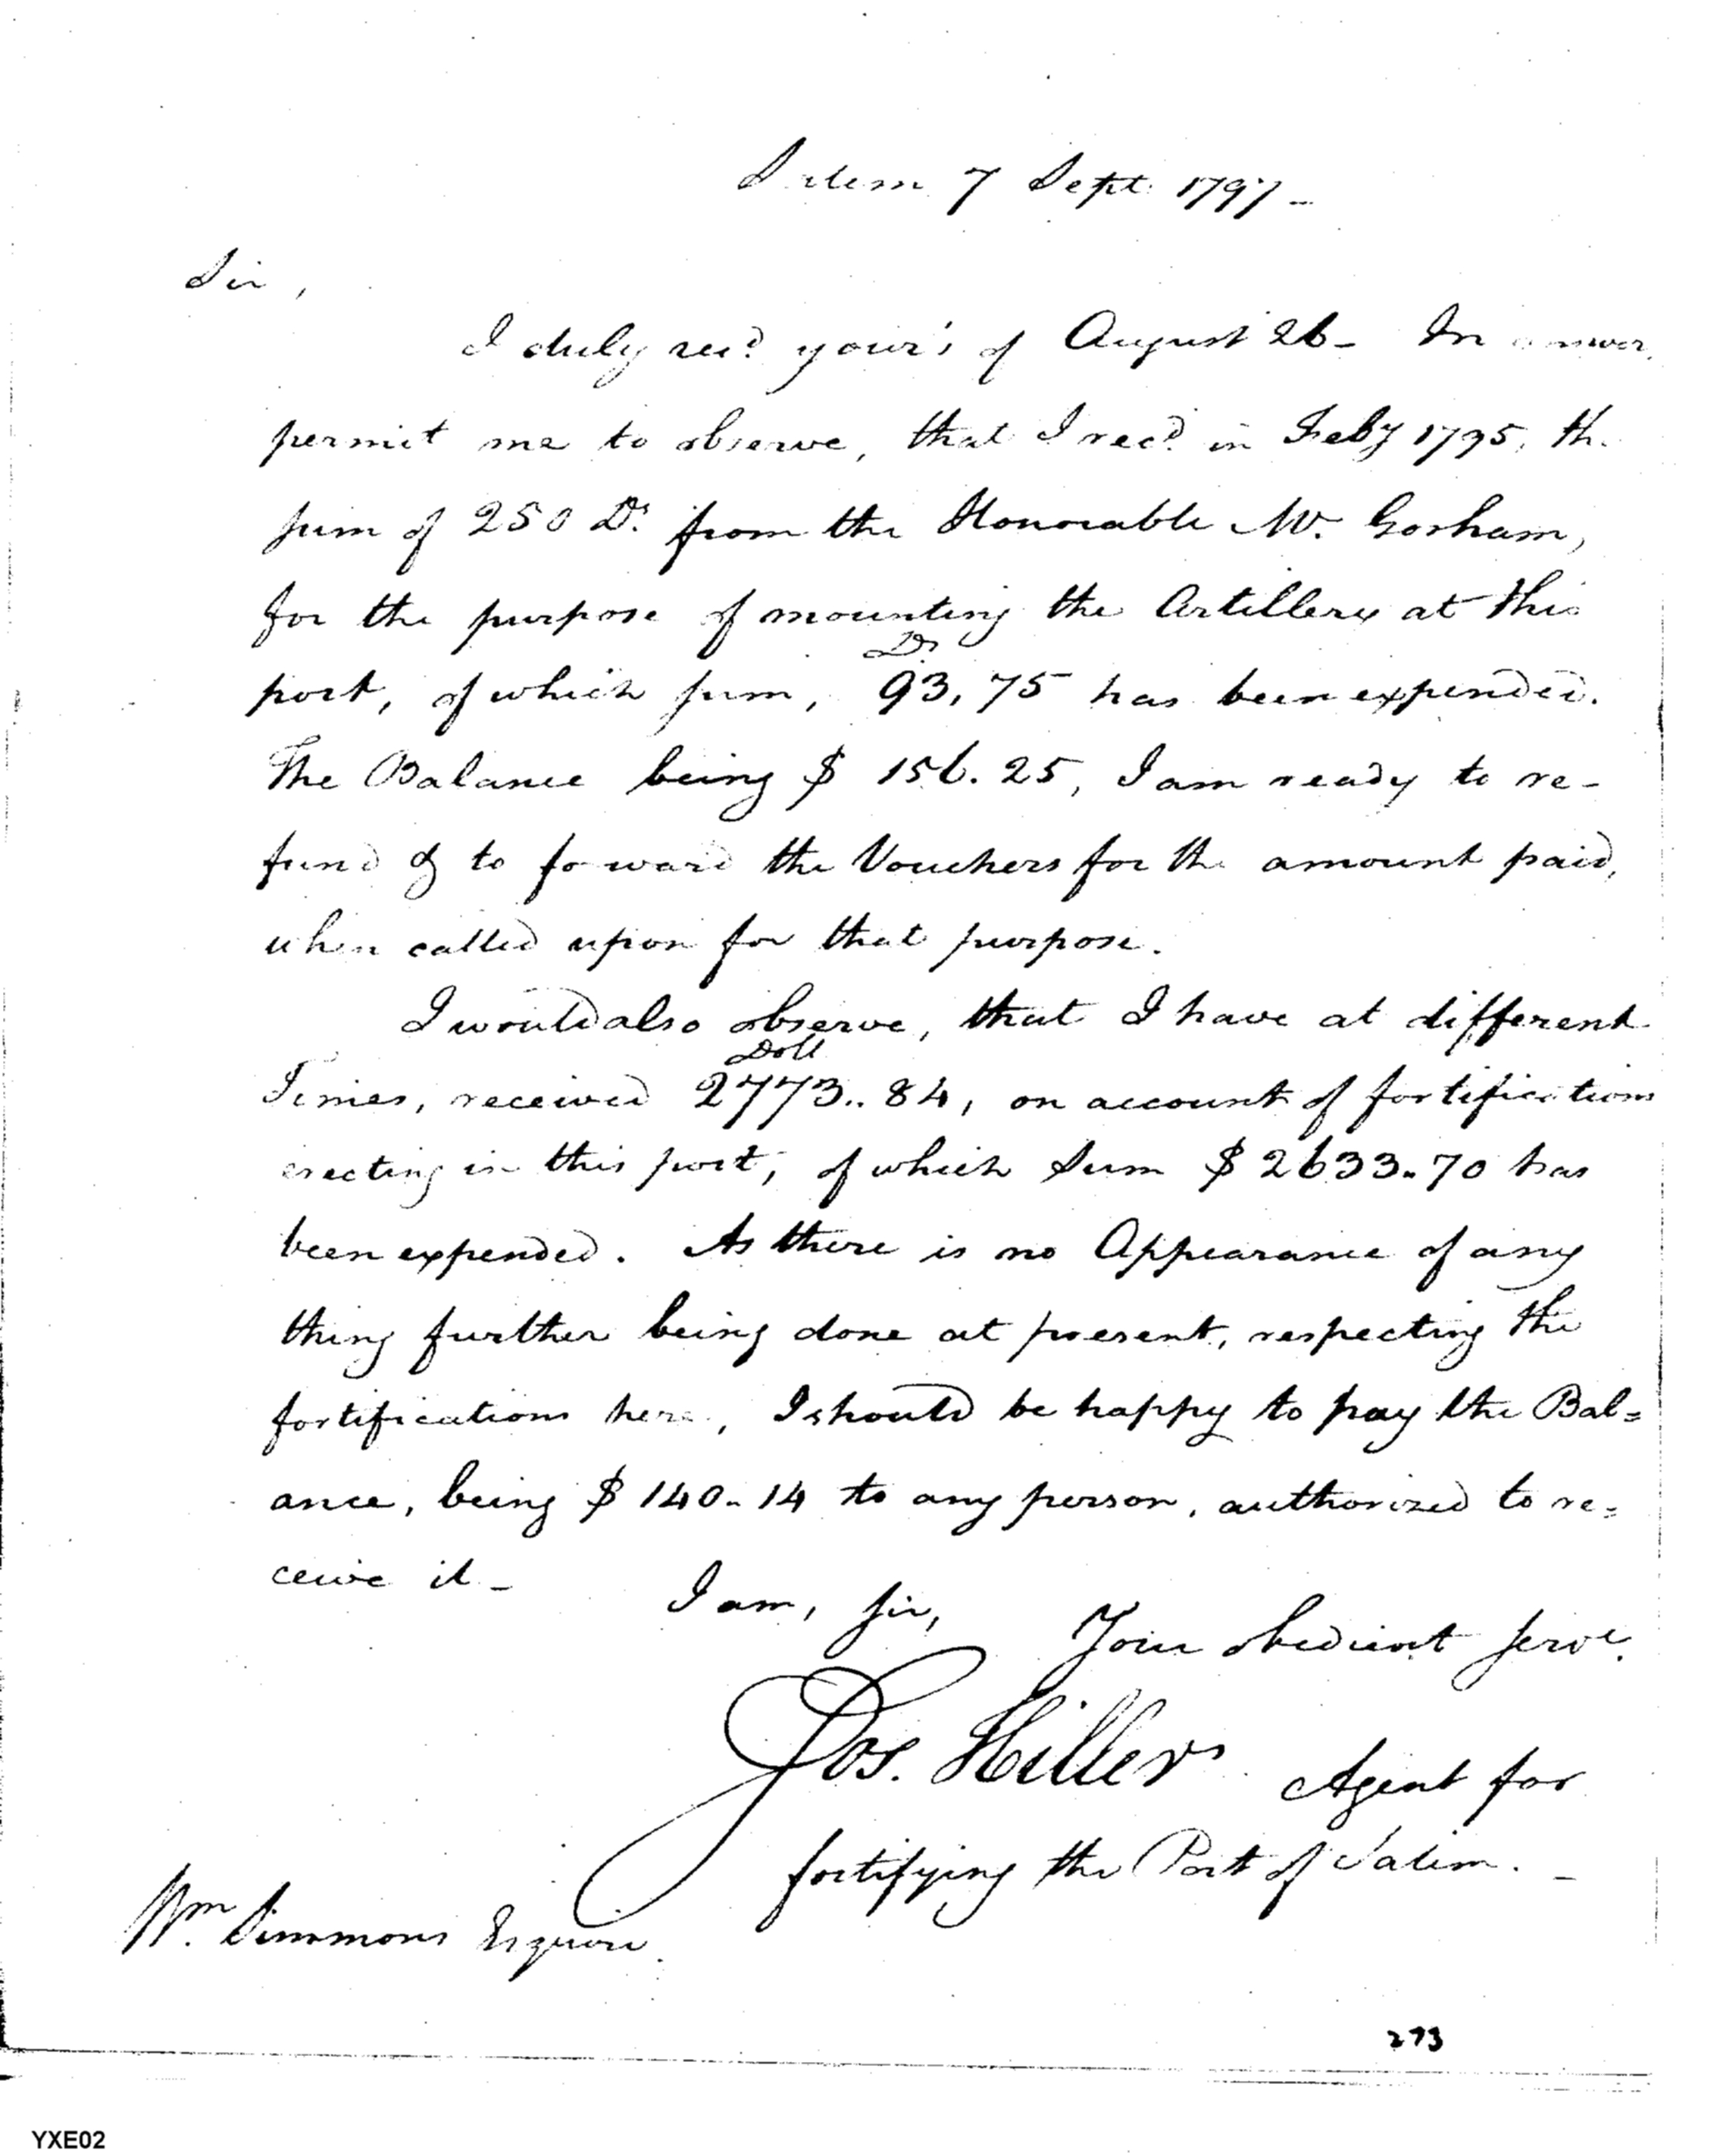 Salem 7 Sept. 1797 -
Sir,
I duly recd. your's of August 26 - In answer,
permit me to observe, that I recd. in Feby 1795, the
sum of 250 Ds. from the Honorable Mr. Gorham,
for the purpose of mounting the Artillery at this
Ds.
port, of which sum, 93,75 has been expended.
The Balance being $ 156.25, I am ready to re-
fund & to forward the Vouchers for the amount paid,
when called upon for that purpose.
I would also observe, that I have at different
Doll
Times, received 2773..84, on account of fortifications
erecting in this port, of which Sum $ 2633.70 has
been expended. As there is no Appearance of any
thing further being done at present, respecting the
fortifications here, I should be happy to pay the Bal=
ance, being $ 140.14 to any person, authorized to re=
ceive it -
I am, sir,
Your obedient Serve.
Jos. Hiller Agent for
fortifying the Port of Salem. -
Wm. Simmons Esquire.
273
YXE02